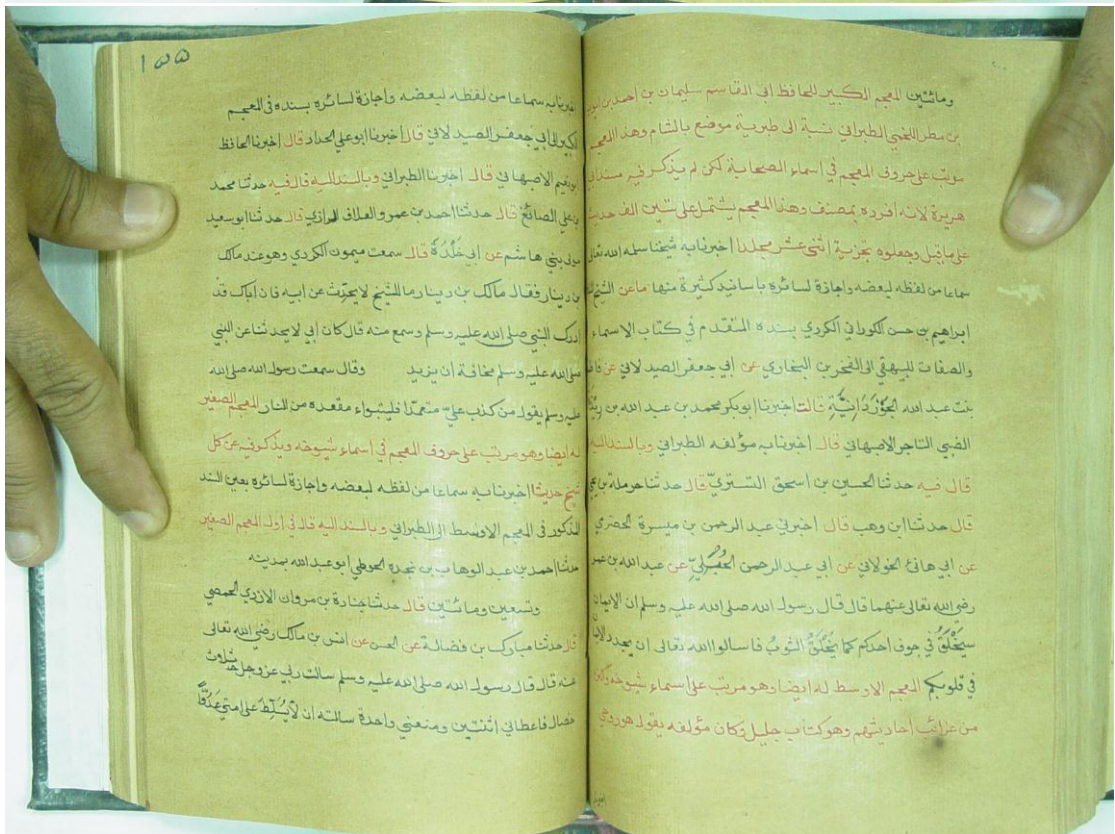 وماثتين المعجم الكبير للحافظ ابي القاسم سليمان بن احمد بن ايوب
بن مطر اللخمي الطبراني نسبة الى طبرية موضع بالشام وهذا المعجم
مرتب على حروف المعجم في اسماء الصحابة لكن لم يذكر فيه مسند ابي
هريرة لانه افرده بمصنف وهذا المعجم يشتمل على ستين الف حديث
على ماقيل وجعلوه بتجزية اثنى عشر مجلدا اخبرنا به شيخنا سلمه الله تعالى
سماعا من لفظه لبعضه واجازة لسائره باسانيد كثيرة منها ماعن الشيخ
ابراهيم بن حسن الكوراني الكردي بسنده المتقدم في كتاب الاسماء
والصفات للبيهقي الى الفخر بن البخاري عن ابي جعفر الصيدلاني عن
بنت عبد الله الجُوْزَدَانِيَّةِ قالت اخبرنا ابوبكر محمد بن عبد الله بن
الضبي التاجر الاصبهاني قال اخبرنا به مؤلفه الطبراني وبالسند اليه
قال فيه حدثنا الحسين بن اسحق التستريّ قال حدثنا حرملة بن
قال حدثنا ابن وهب قال اخبرني عبد الرحمن بن ميسرة الحضري
عن ابي هانئ الخولاني عن ابي عبد الرحمن عن عبد الله بن عمر
رضي الله تعالى عنهما قال قال رسول الله صلى الله عليه وسلم ان الايمان
سيَخْلَقُ في جوف احدكم كما يَخْلَقُ الثوبُ فاسالوا الله تعالى ان يجدد
في قلوبكم المعجم الاوسط له ايضا وهو مرتب على اسماء شيوخه
من غرائب احاديثهم وهو كتاب جليل وكان مؤلفه يقول هو روحي
١٥٥
اخبرنا به سماعا من لفظه لبعضه واجازة لسائره بسنده في المعجم
الكبير الى ابي جعفر الصيدلاني قال اخبرنا ابو علي الحداد قال اخبرنا الحافظ
ابو نعيم الاصبهاني قال اخبرنا الطبراني وبالسند اليه قال فيه حدثنا محمد
بن علي الصائغ قال حدثنا احمد بن عمرو العلاف الرازي قال حدثنا ابو سعيد
مولى بني هاشم عن ابي خَلْدَةَ قال سمعت ميمون الكردي وهو عند مالك
بن دينار فقال مالك بن دينار ما للشيخ لا يحدث عن ابيه فان اباك قد
ادرك النبي صلى الله عليه وسلم وسمع منه قال كان ابي لا يحدثنا عن النبي
صلى الله عليه وسلم مخافة ان يزيد وقال سمعت رسول الله صلى الله
عليه وسلم يقول من كذب عليّ متعمدًا فليتبواء مقعده من النار المعجم الصغير
له ايضا وهو مرتب على حروف المعجم في اسماء شيوخه ويذكر فيه عن كل
شيخ حديثا اخبرنا به سماعا من لفظه لبعضه واجازة لسائره بعين السند
المذكور في المعجم الاوسط الى الطبراني وبالسند اليه قال في اول المعجم الصغير
حدثنا احمد بن عبد الوهاب بن نجدة الحوطي ابو عبد الله بمدينه
وتسعين وماثتين قال حدثنا جنادة بن مروان الازدي الحمصي
قال حدثنا مبارك بن فضالة عن الحسن عن انس بن مالك رضي الله تعالى
عنه قال قال رسول الله صلى الله عليه وسلم سالت ربي عز وجل ثلاث
خصال فاعطاني اثنتين ومنعني واحدة سالته ان لا يُسَلِّطَ على امتي عَدُوًّا